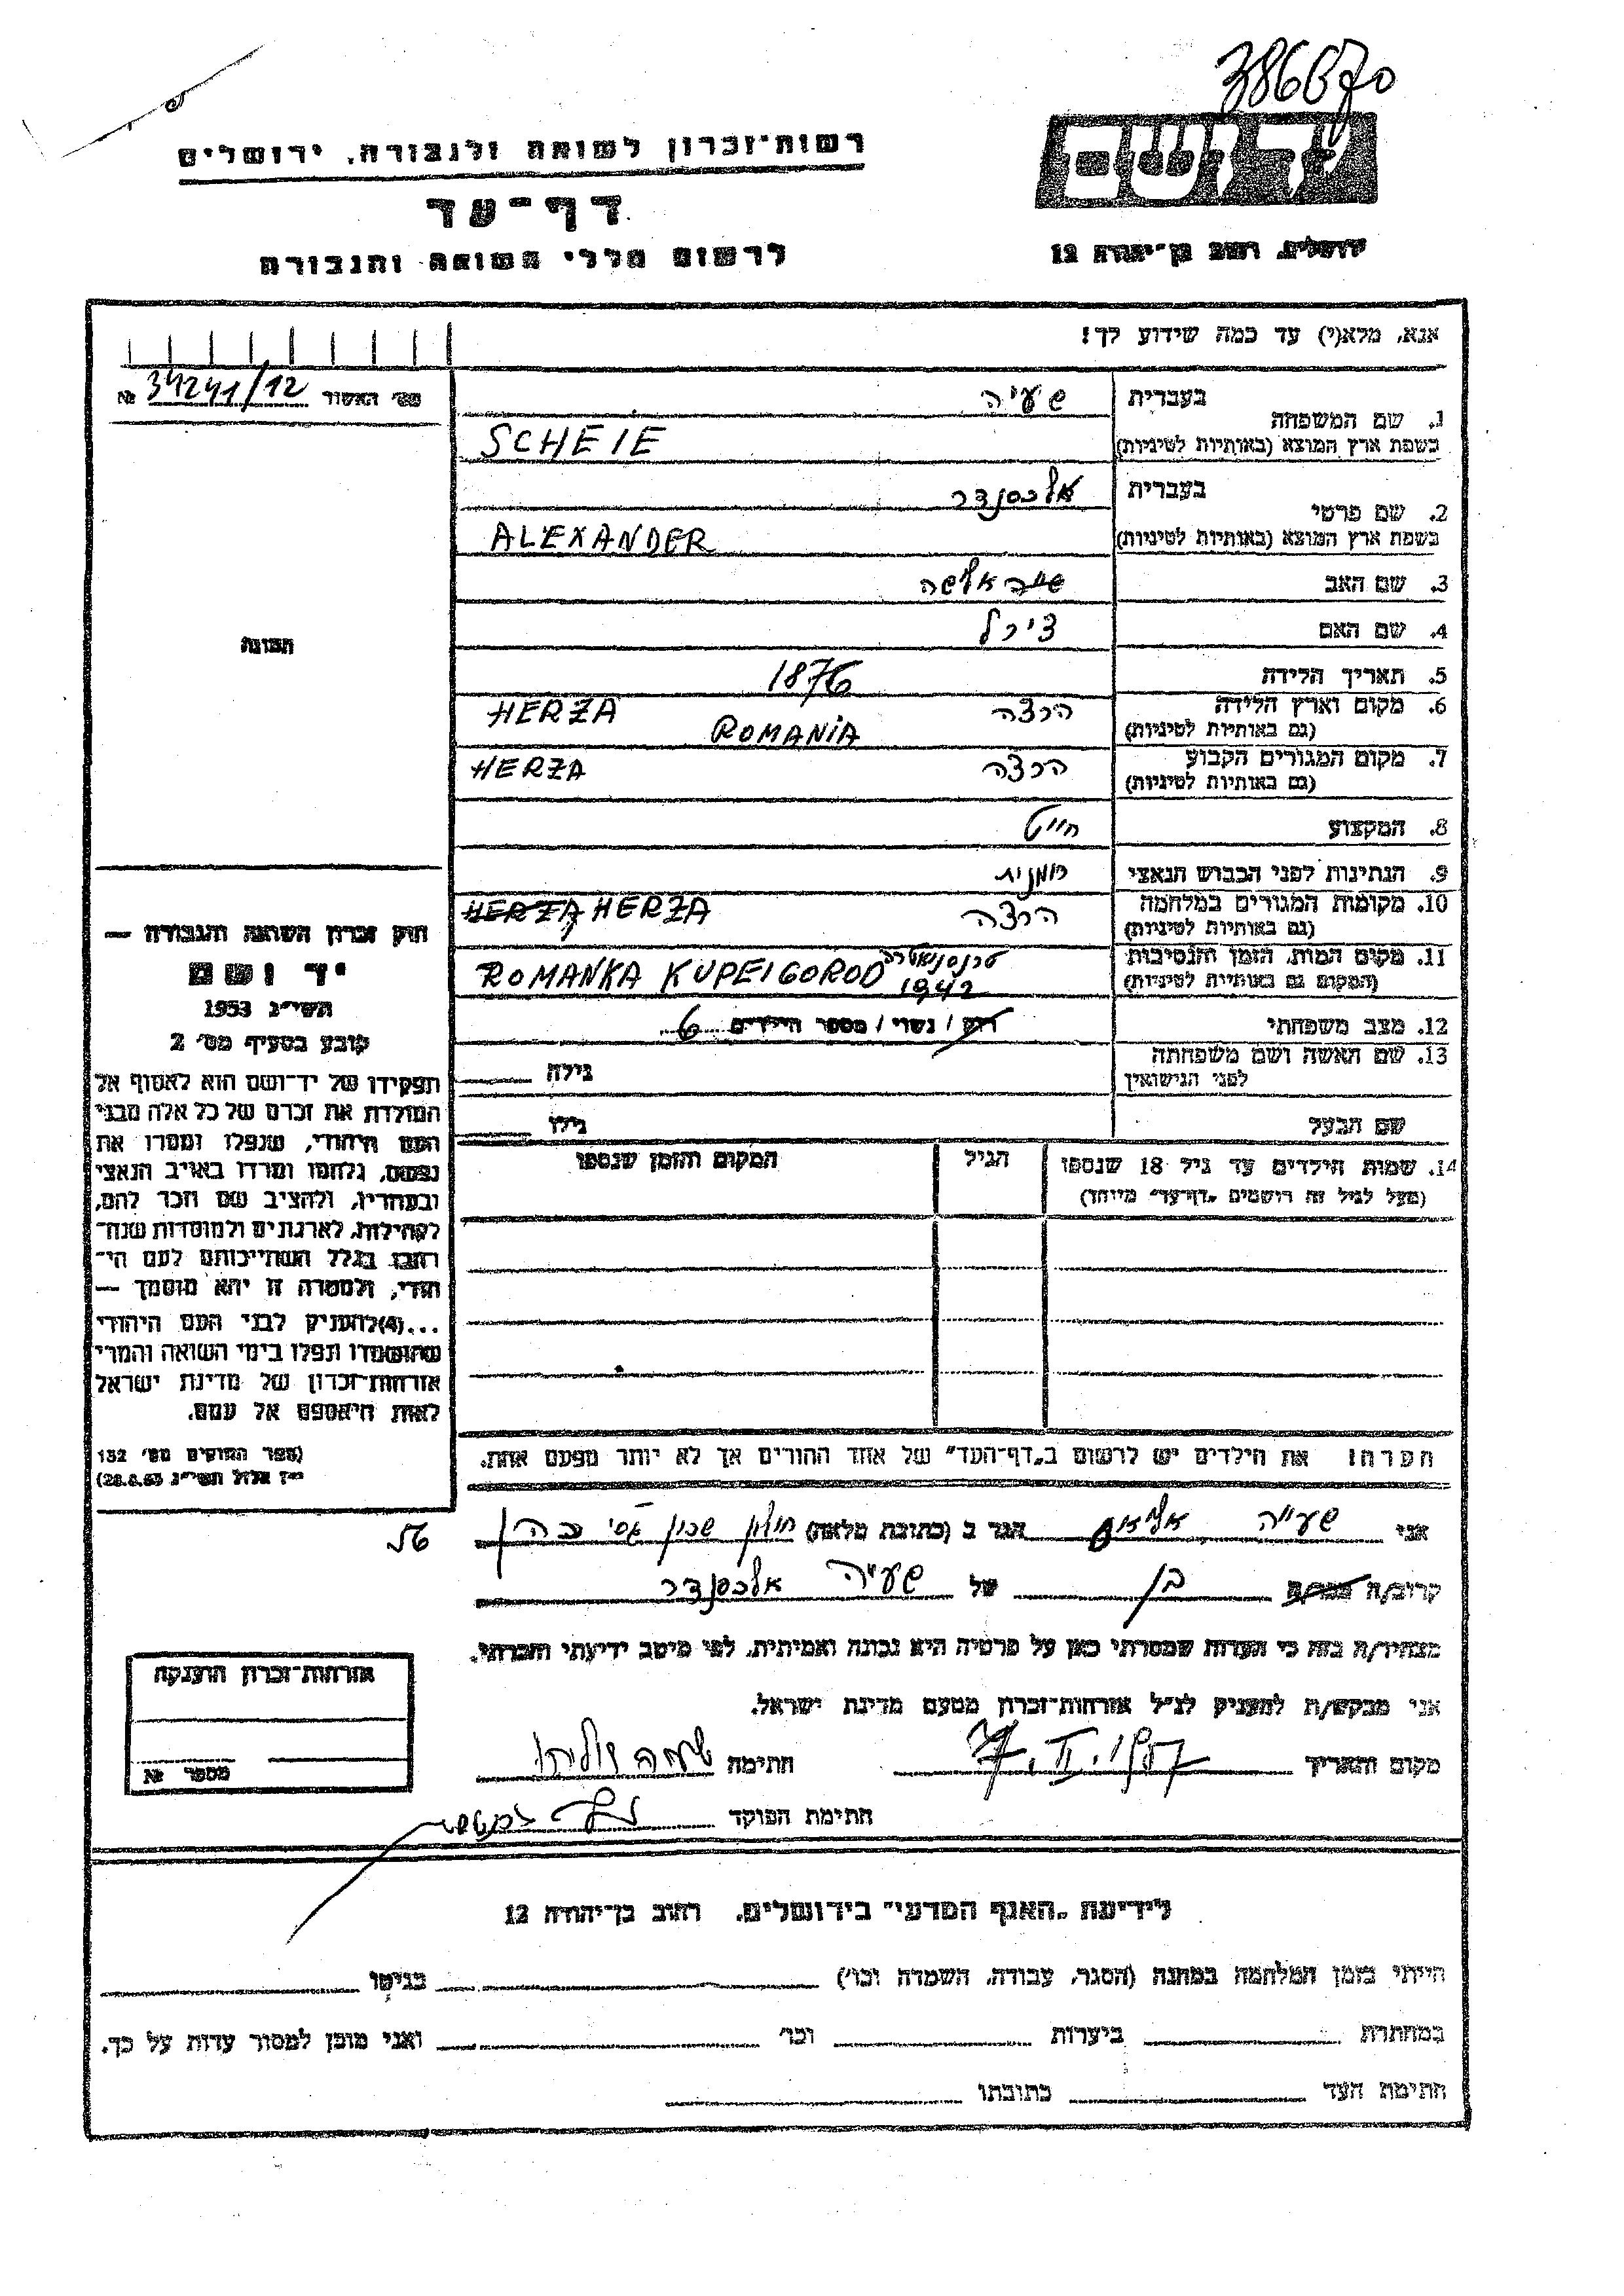 386670
רשות־זכרון לשואה ולגבורה, ירושלים
יד ושם
דף־עד
ירושלים, רחוב בן־יהודה 12
לרשום חללי השואה והגבורה
אנא, מלא(י) עד כמה שידוע לך!
מס׳ האשור 34241/12 №
1. שם המשפחה
בעברית שעיה
בשפת ארץ המוצא (באותיות לטיניות) SCHEIE
2. שם פרטי
בעברית אלכסנדר
בשפת ארץ המוצא (באותיות לטיניות) ALEXANDER
3. שם האב אלשה
4. שם האם צירל
תמונה
5. תאריך הלידה 1876
6. מקום וארץ הלידה הרצה HERZA
(גם באותיות לטיניות) ROMANIA
7. מקום המגורים הקבוע הרצה HERZA
(גם באותיות לטיניות)
8. המקצוע חייט
9. הנתינות לפני הכבוש הנאצי רומנית
10. מקומות המגורים במלחמה הרצה HERZA HERZA
(גם באותיות לטיניות)
11. מקום המות, הזמן והנסיבות טרנסניסטריה ROMANKA KUPEIGOROD
(המקום גם באותיות לטיניות) 1942
12. מצב משפחתי רוק / נשוי / מספר הילדים 6
13. שם האשה ושם משפחתה גילה
לפני הנישואין
שם הבעל גילו
14. שמות הילדים עד גיל 18 שנספו הגיל המקום והזמן שנספו
(מעל לגיל זה רושמים „דף־עד״ מיוחד)
חוק זכרון השואה והגבורה —
יד ושם
תשי״ג 1953
קובע בסעיף מס׳ 2
תפקידו של יד־ושם הוא לאסוף אל
המולדת את זכרם של כל אלה מבני
העם היהודי, שנפלו ומסרו את
נפשם, נלחמו ומרדו באויב הנאצי
ובעוזריו, ולהציב שם וזכר להם,
לקהילות, לארגונים ולמוסדות שנח־
רבו בגלל השתייכותם לעם הי־
הודי, ולמטרה זו יהא מוסמך —
...(4)להעניק לבני העם היהודי
שהושמדו ונפלו בימי השואה והמרי
אזרחות־זכרון של מדינת ישראל
לאות היאספם אל עמם.
(ספר החוקים מס׳ 132
י״ז אלול תשי״ג 28.8.53)
הערה! את הילדים יש לרשום ב„דף־העד״ של אחד ההורים אך לא יותר מפעם אחת.
אני שעייה הגר ב (כתובת מלאה) חולון שכון
קרוב/ה מכר/ה בן של שעיה אלכסנדר
מצהיר/ה בזה כי העדות שמסרתי כאן על פרטיה היא נכונה ואמיתית, לפי מיטב ידיעתי והכרתי.
אני מבקש/ת להעניק לנ״ל אזרחות־זכרון מטעם מדינת ישראל.
מקום ותאריך 7.II.1957 חתימה
חתימת הפוקד
אזרחות־זכרון הוענקה
מספר №
לידיעת „האגף המדעי״ בירושלים, רחוב בן־יהודה 12
הייתי בזמן המלחמה במחנה (הסגר, עבודה, השמדה וכו׳) בגיטו
במחתרת ביערות וכו׳ ואני מוכן למסור עדות על כך.
חתימת העד כתובתו